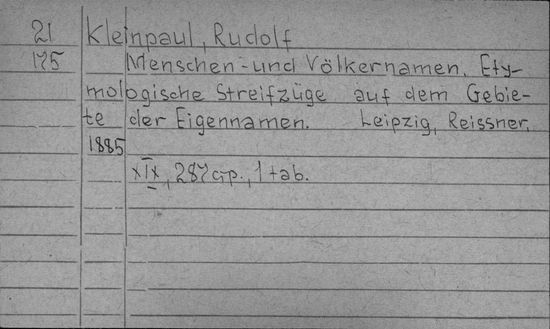 21 Kleinpaul, Rudolf
175 Menschen- und Völkernamen. Ety-
mologische Streifzüge auf dem Gebie-
te der Eigennamen. Leipzig, Reissner,
1885
XIX, 287 cтр., 1 tab.